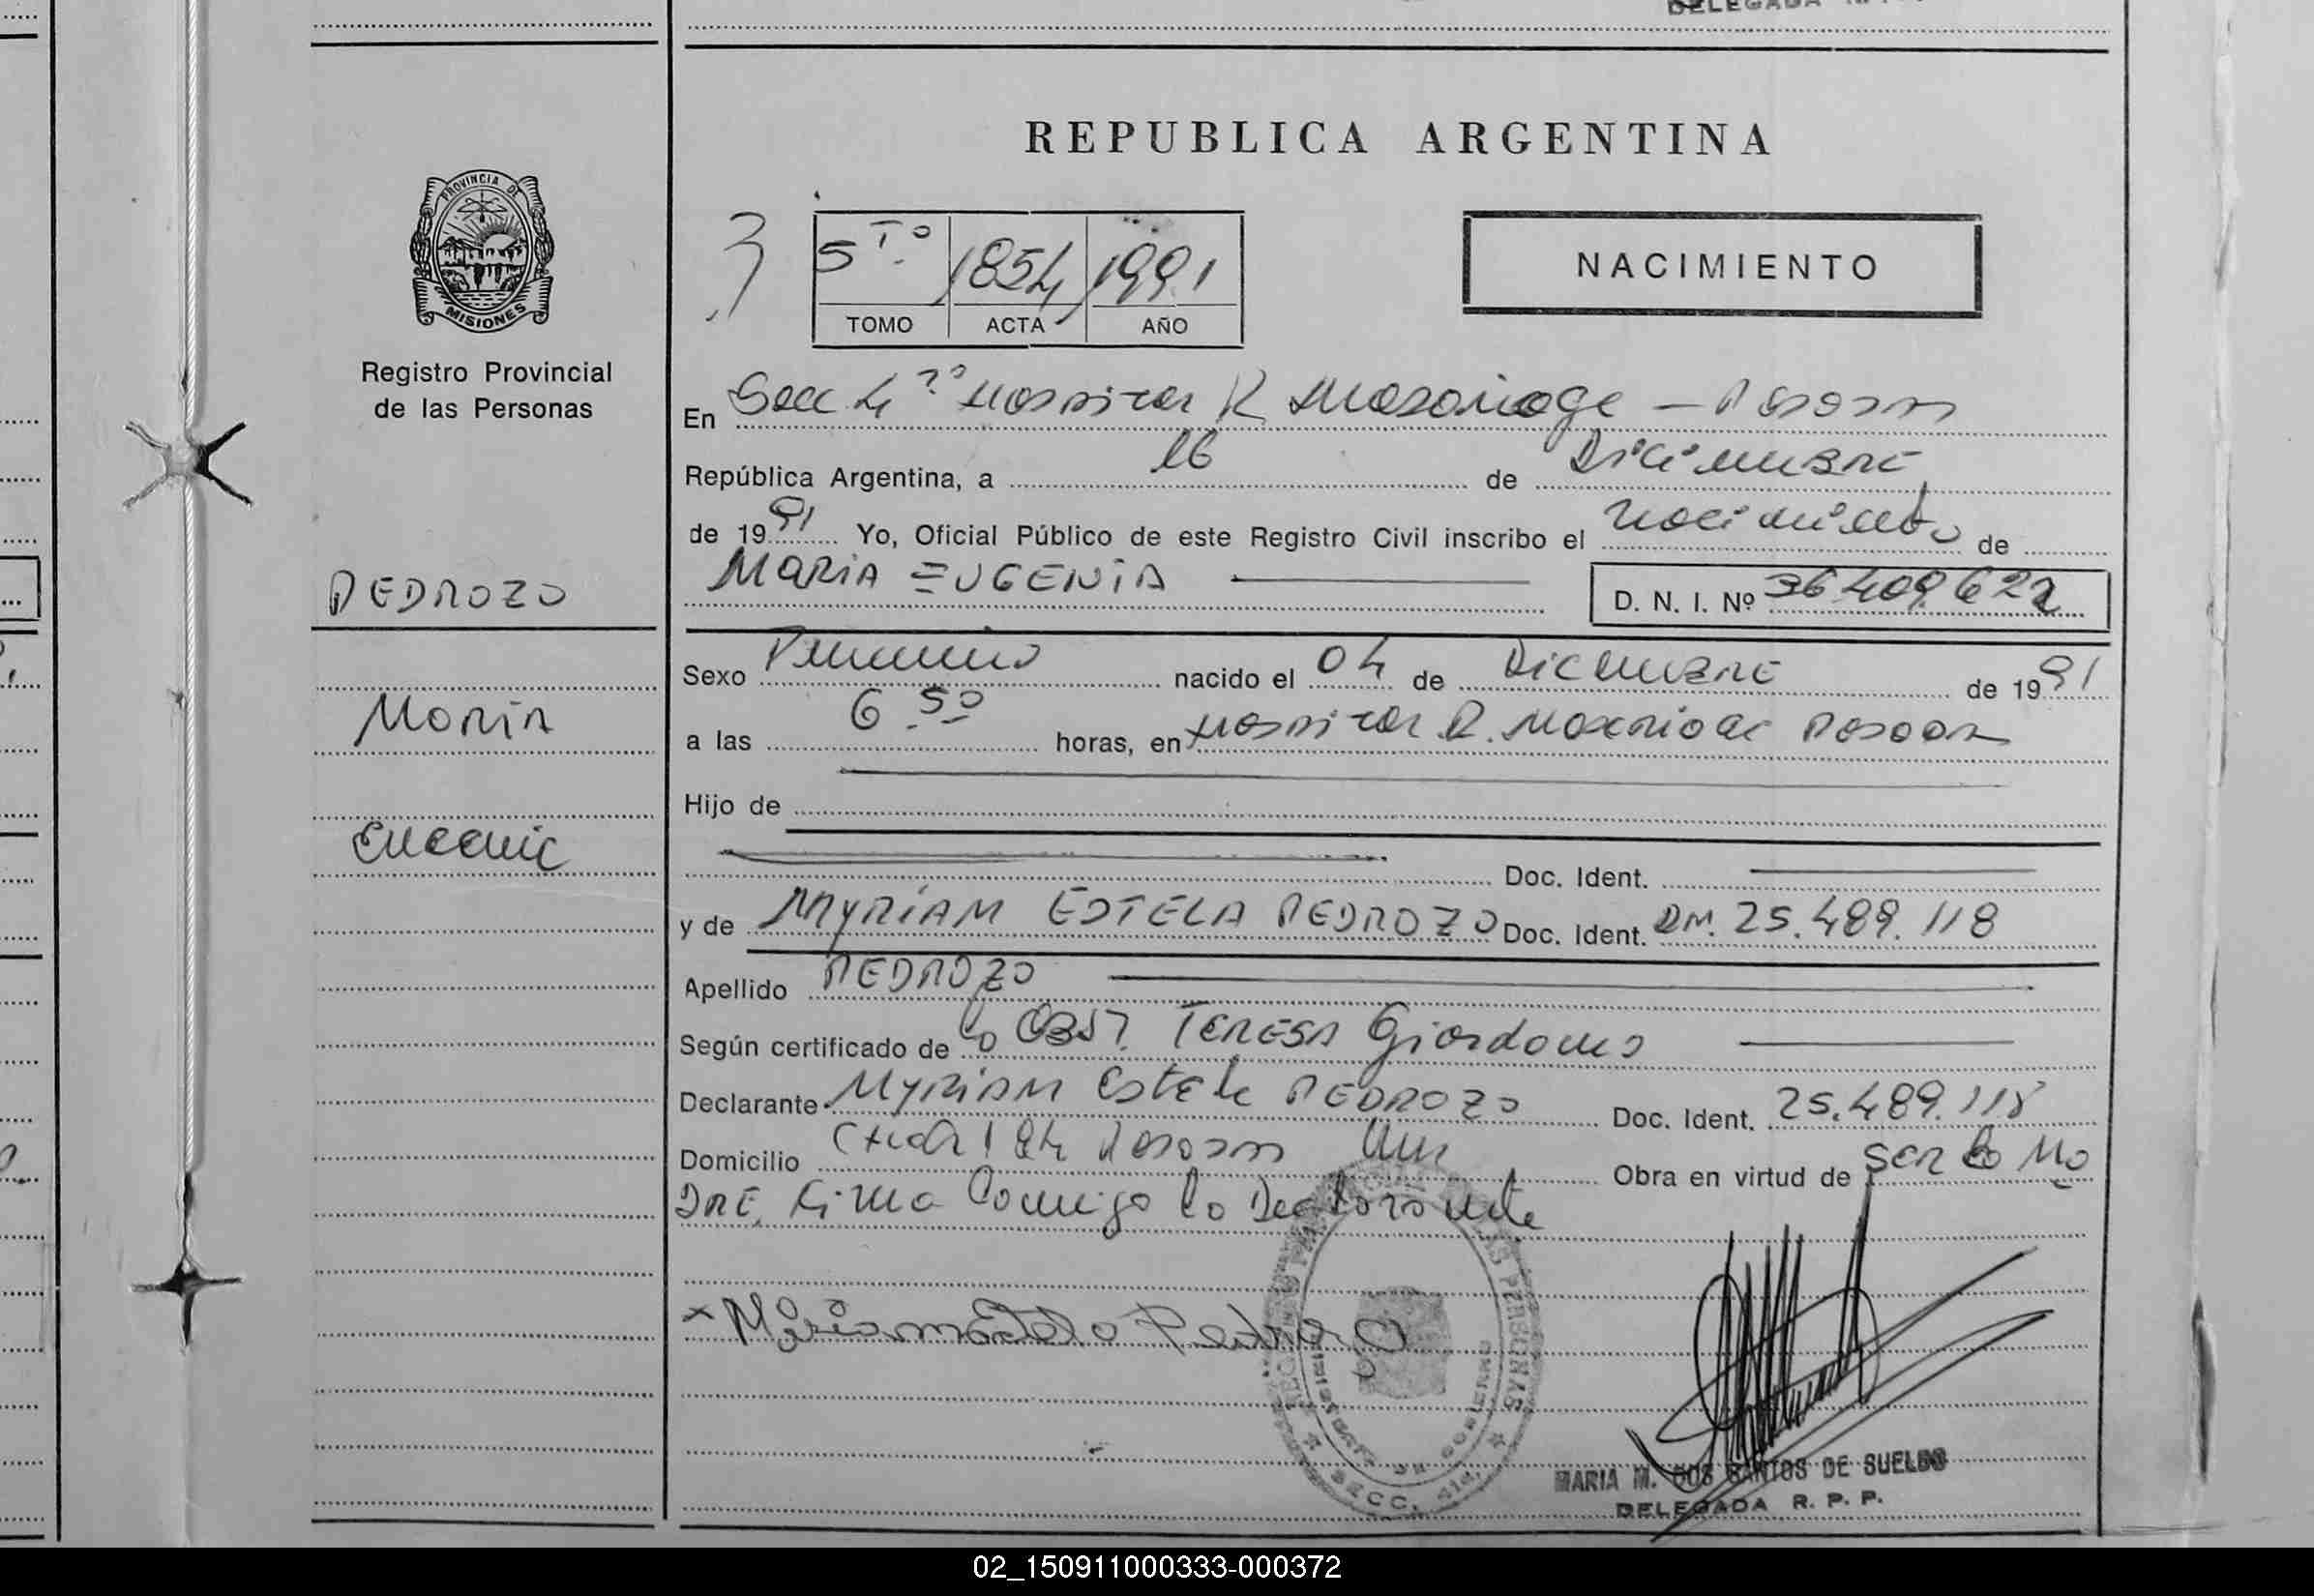 DELEGADA
REPUBLICA ARGENTINA
PROVINCIA DE
MISIONES
Registro Provincial
de las Personas
3
5To. 1854 1991
TOMO ACTA AÑO
NACIMIENTO
En Secc 4ta Hospital R Madariaga – Posadas
República Argentina, a 16 de Diciembre
de 1991 Yo, Oficial Público de este Registro Civil inscribo el nacimiento de
MARIA EUGENIA
D. N. I. Nº 36.409.622
PEDROZO
Maria
Eugenia
Sexo Femenino nacido el 04 de Diciembre de 1991
a las 6.50 horas, en Hospital R. Madariaga Posadas
Hijo de
Doc. Ident.
y de MYRIAM ESTELA PEDROZO Doc. Ident. DNI. 25.489.118
Apellido PEDROZO
Según certificado de la OBST. TERESA Giordano
Declarante MYRIAM Estela PEDROZO Doc. Ident. 25.489.118
Domicilio Chacra 184 Posadas Mnes Obra en virtud de ser la Ma
DRE, Firma Conmigo la Declarante
x Miriam Estela Pedrozo
REGISTRO PROVINCIAL DE LAS PERSONAS
SECC. 4ta.
MARIA M. DOS SANTOS DE SUELDO
DELEGADA R. P. P.
02_150911000333-000372